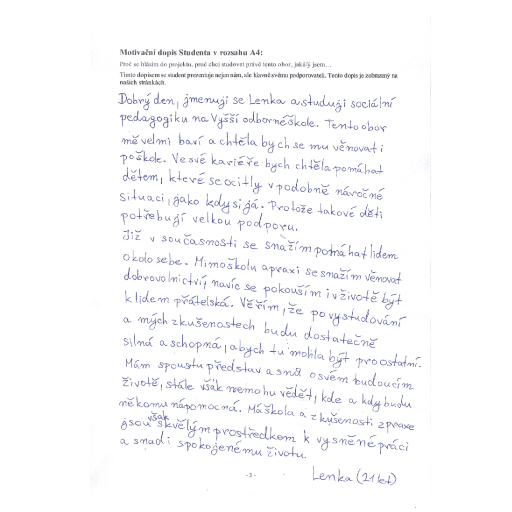 Motivační dopis Studenta v rozsahu A4:
Proč se hlásím do projektu, proč chci studovat právě tento obor, jaký/á jsem…
Tímto dopisem se student prezentuje nejen nám, ale hlavně svému podporovateli. Tento dopis je zobrazený na
našich stránkách.
Dobrý den, jmenuji se Lenka a studuji sociální
pedagogiku na Vyšší odborné škole. Tento obor
mě velmi baví a chtěla bych se mu věnovat i
po škole. Ve své kariéře bych chtěla pomáhat
dětem, které se ocitly v podobně náročné
situaci, jako kdysi já. Protože takové děti
potřebují velkou podporu.
Již v současnosti se snažím pomáhat lidem
okolo sebe. Mimo školu a praxi se snažím věnovat
dobrovolnictví, navíc se pokouším i v životě být
k lidem přátelská. Věřím, že po vystudování
a mých zkušenostech budu dostatečně
silná a schopná, abych tu mohla být pro ostatní.
Mám spoustu představ a snů o svém budoucím
životě, stále však nemohu vědět, kde a kdy budu
někomu nápomocná. Má škola a zkušenosti z praxe
jsou však skvělým prostředkem k vysněné práci
a snad i spokojenému životu.
Lenka (21 let)
- 3 -